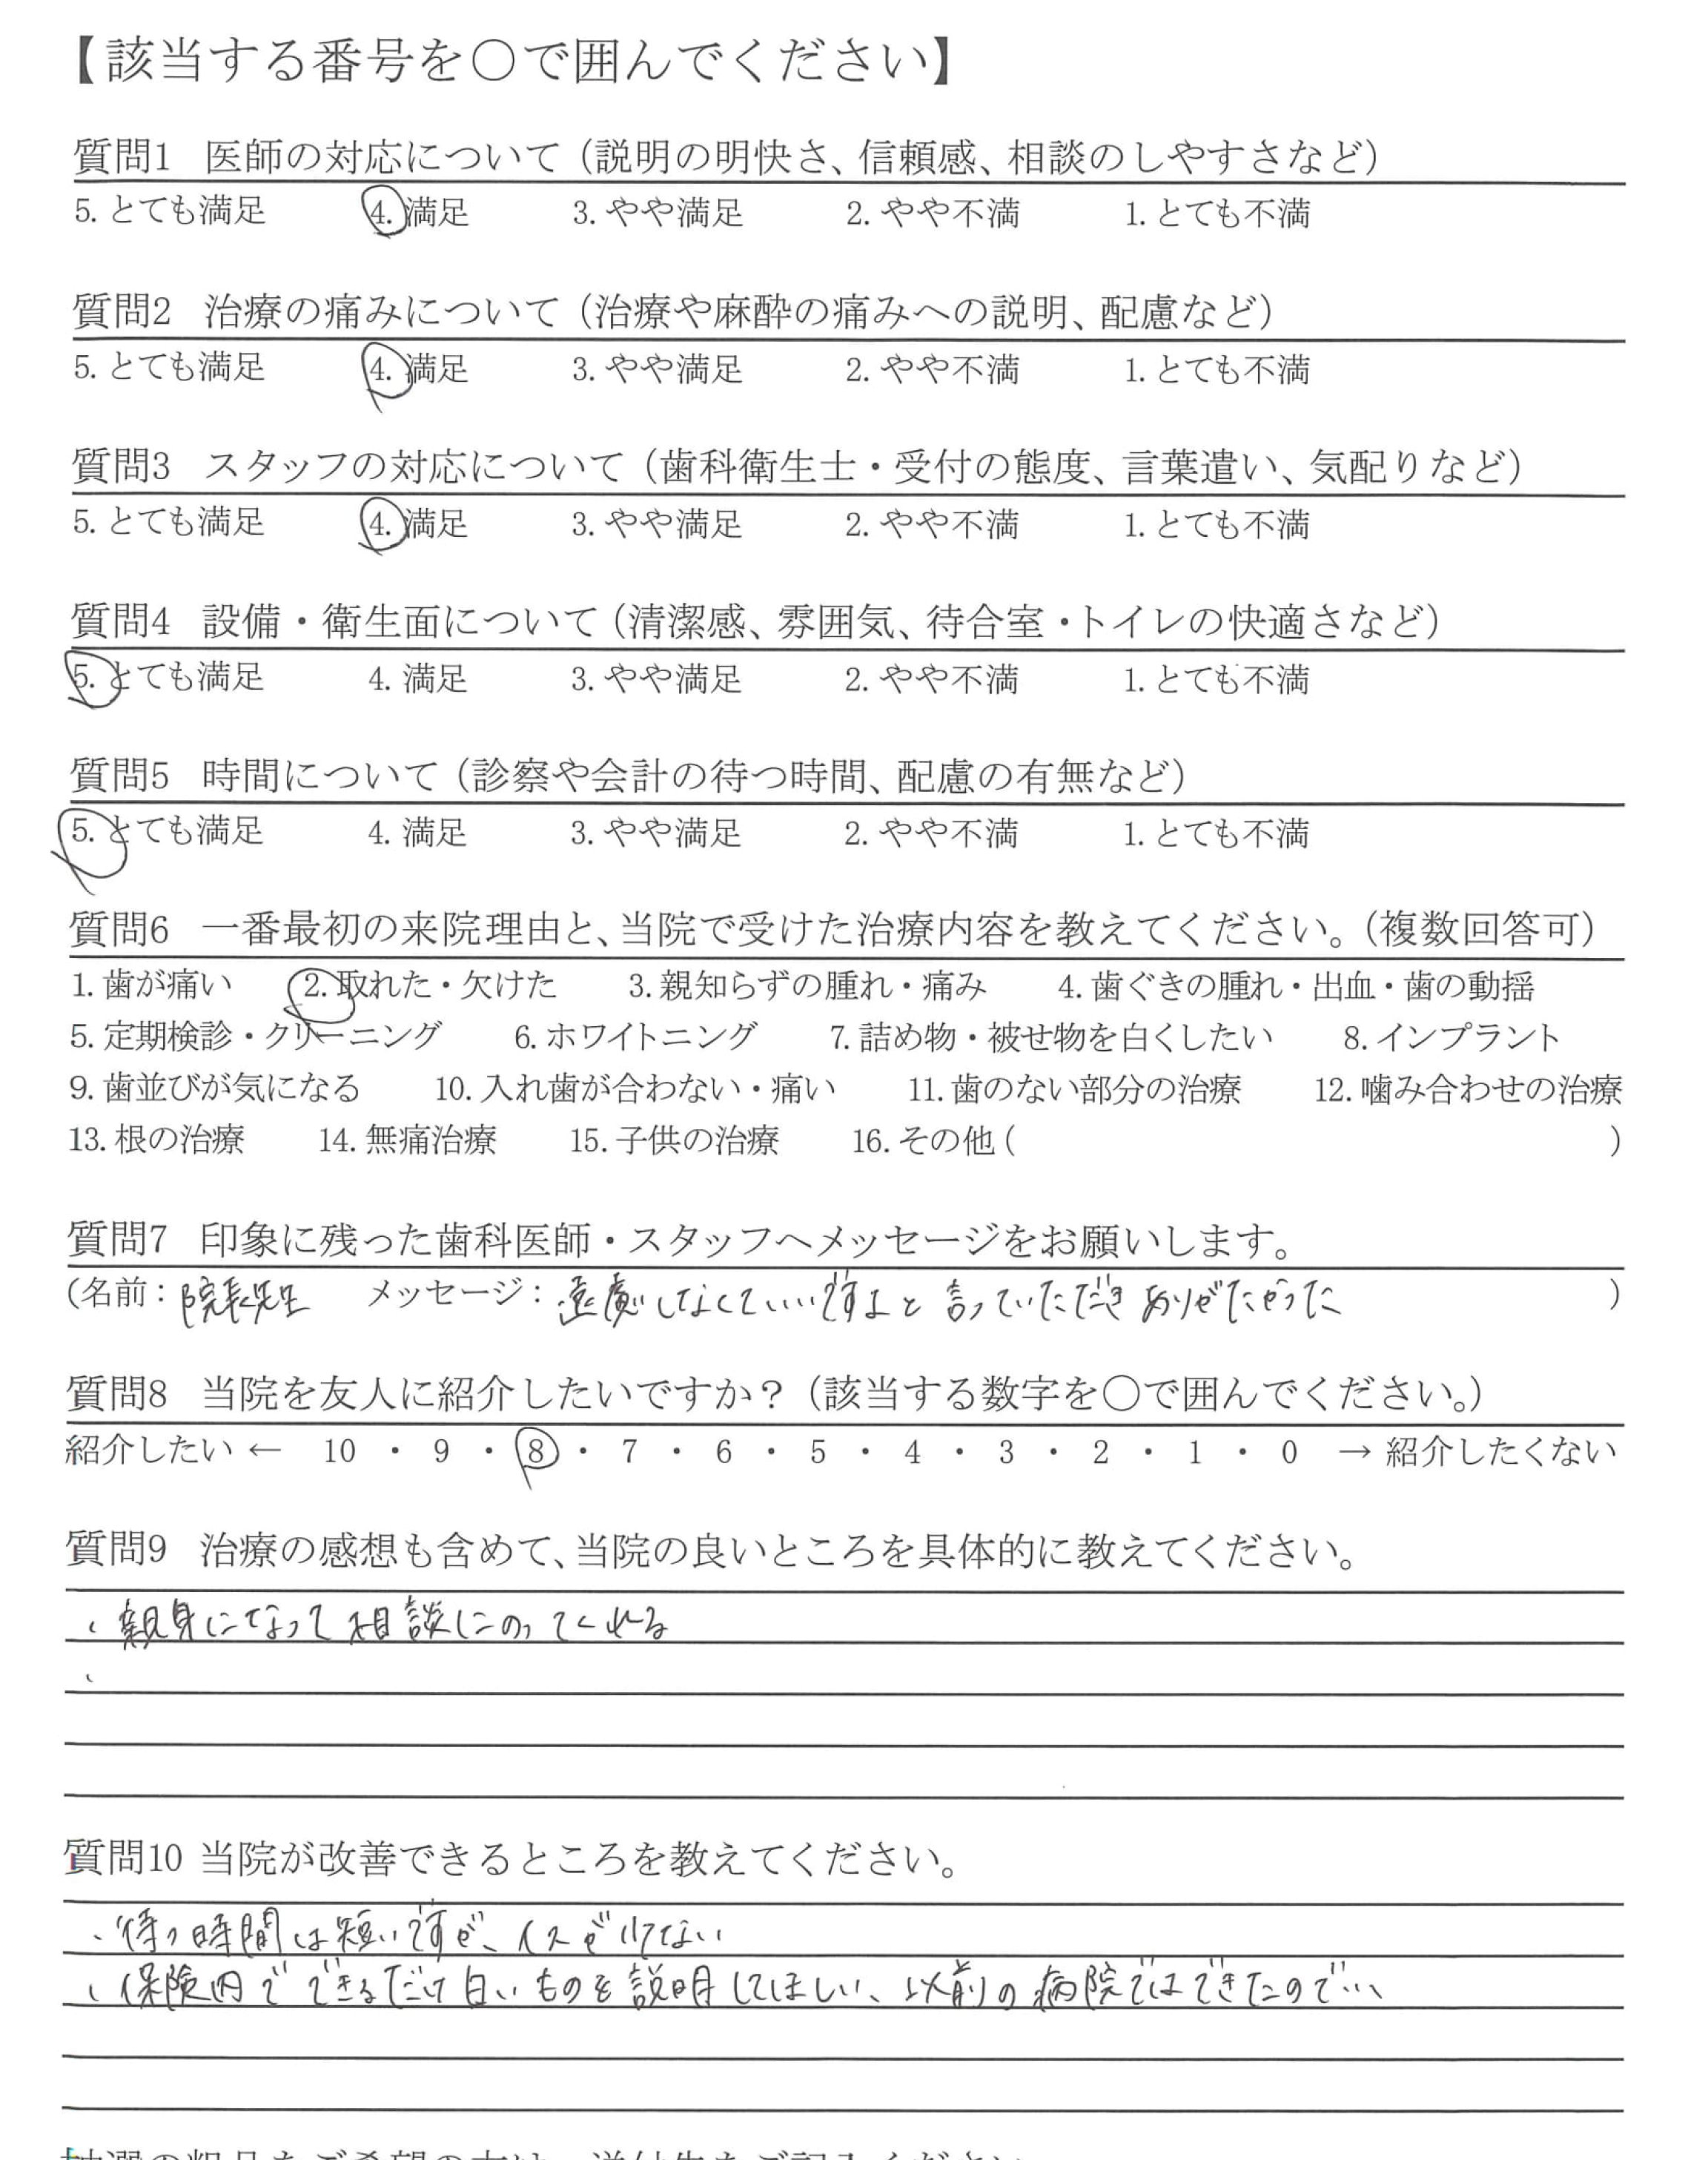 【該当する番号を〇で囲んでください】
質問1 医師の対応について（説明の明快さ、信頼感、相談のしやすさなど）
5. とても満足 4. 満足 3. やや満足 2. やや不満 1. とても不満
質問2 治療の痛みについて（治療や麻酔の痛みへの説明、配慮など）
5. とても満足 4. 満足 3. やや満足 2. やや不満 1. とても不満
質問3 スタッフの対応について（歯科衛生士・受付の態度、言葉遣い、気配りなど）
5. とても満足 4. 満足 3. やや満足 2. やや不満 1. とても不満
質問4 設備・衛生面について（清潔感、雰囲気、待合室・トイレの快適さなど）
5. とても満足 4. 満足 3. やや満足 2. やや不満 1. とても不満
質問5 時間について（診察や会計の待つ時間、配慮の有無など）
5. とても満足 4. 満足 3. やや満足 2. やや不満 1. とても不満
質問6 一番最初の来院理由と、当院で受けた治療内容を教えてください。（複数回答可）
1. 歯が痛い 2. 取れた・欠けた 3. 親知らずの腫れ・痛み 4. 歯ぐきの腫れ・出血・歯の動揺
5. 定期検診・クリーニング 6. ホワイトニング 7. 詰め物・被せ物を白くしたい 8. インプラント
9. 歯並びが気になる 10. 入れ歯が合わない・痛い 11. 歯のない部分の治療 12. 噛み合わせの治療
13. 根の治療 14. 無痛治療 15. 子供の治療 16. その他（ ）
質問7 印象に残った歯科医師・スタッフへメッセージをお願いします。
（名前：院長先生 メッセージ：遠慮しなくていいですよと言っていただきありがたかった ）
質問8 当院を友人に紹介したいですか？（該当する数字を〇で囲んでください。）
紹介したい ← 10 ・ 9 ・ 8 ・ 7 ・ 6 ・ 5 ・ 4 ・ 3 ・ 2 ・ 1 ・ 0 → 紹介したくない
質問9 治療の感想も含めて、当院の良いところを具体的に教えてください。
、親身になって相談にのってくれる
、
質問10 当院が改善できるところを教えてください。
、待つ時間は短いですが、イスが少ない
、保険内でできるだけ白いものを説明してほしい、以前の病院ではできたので…